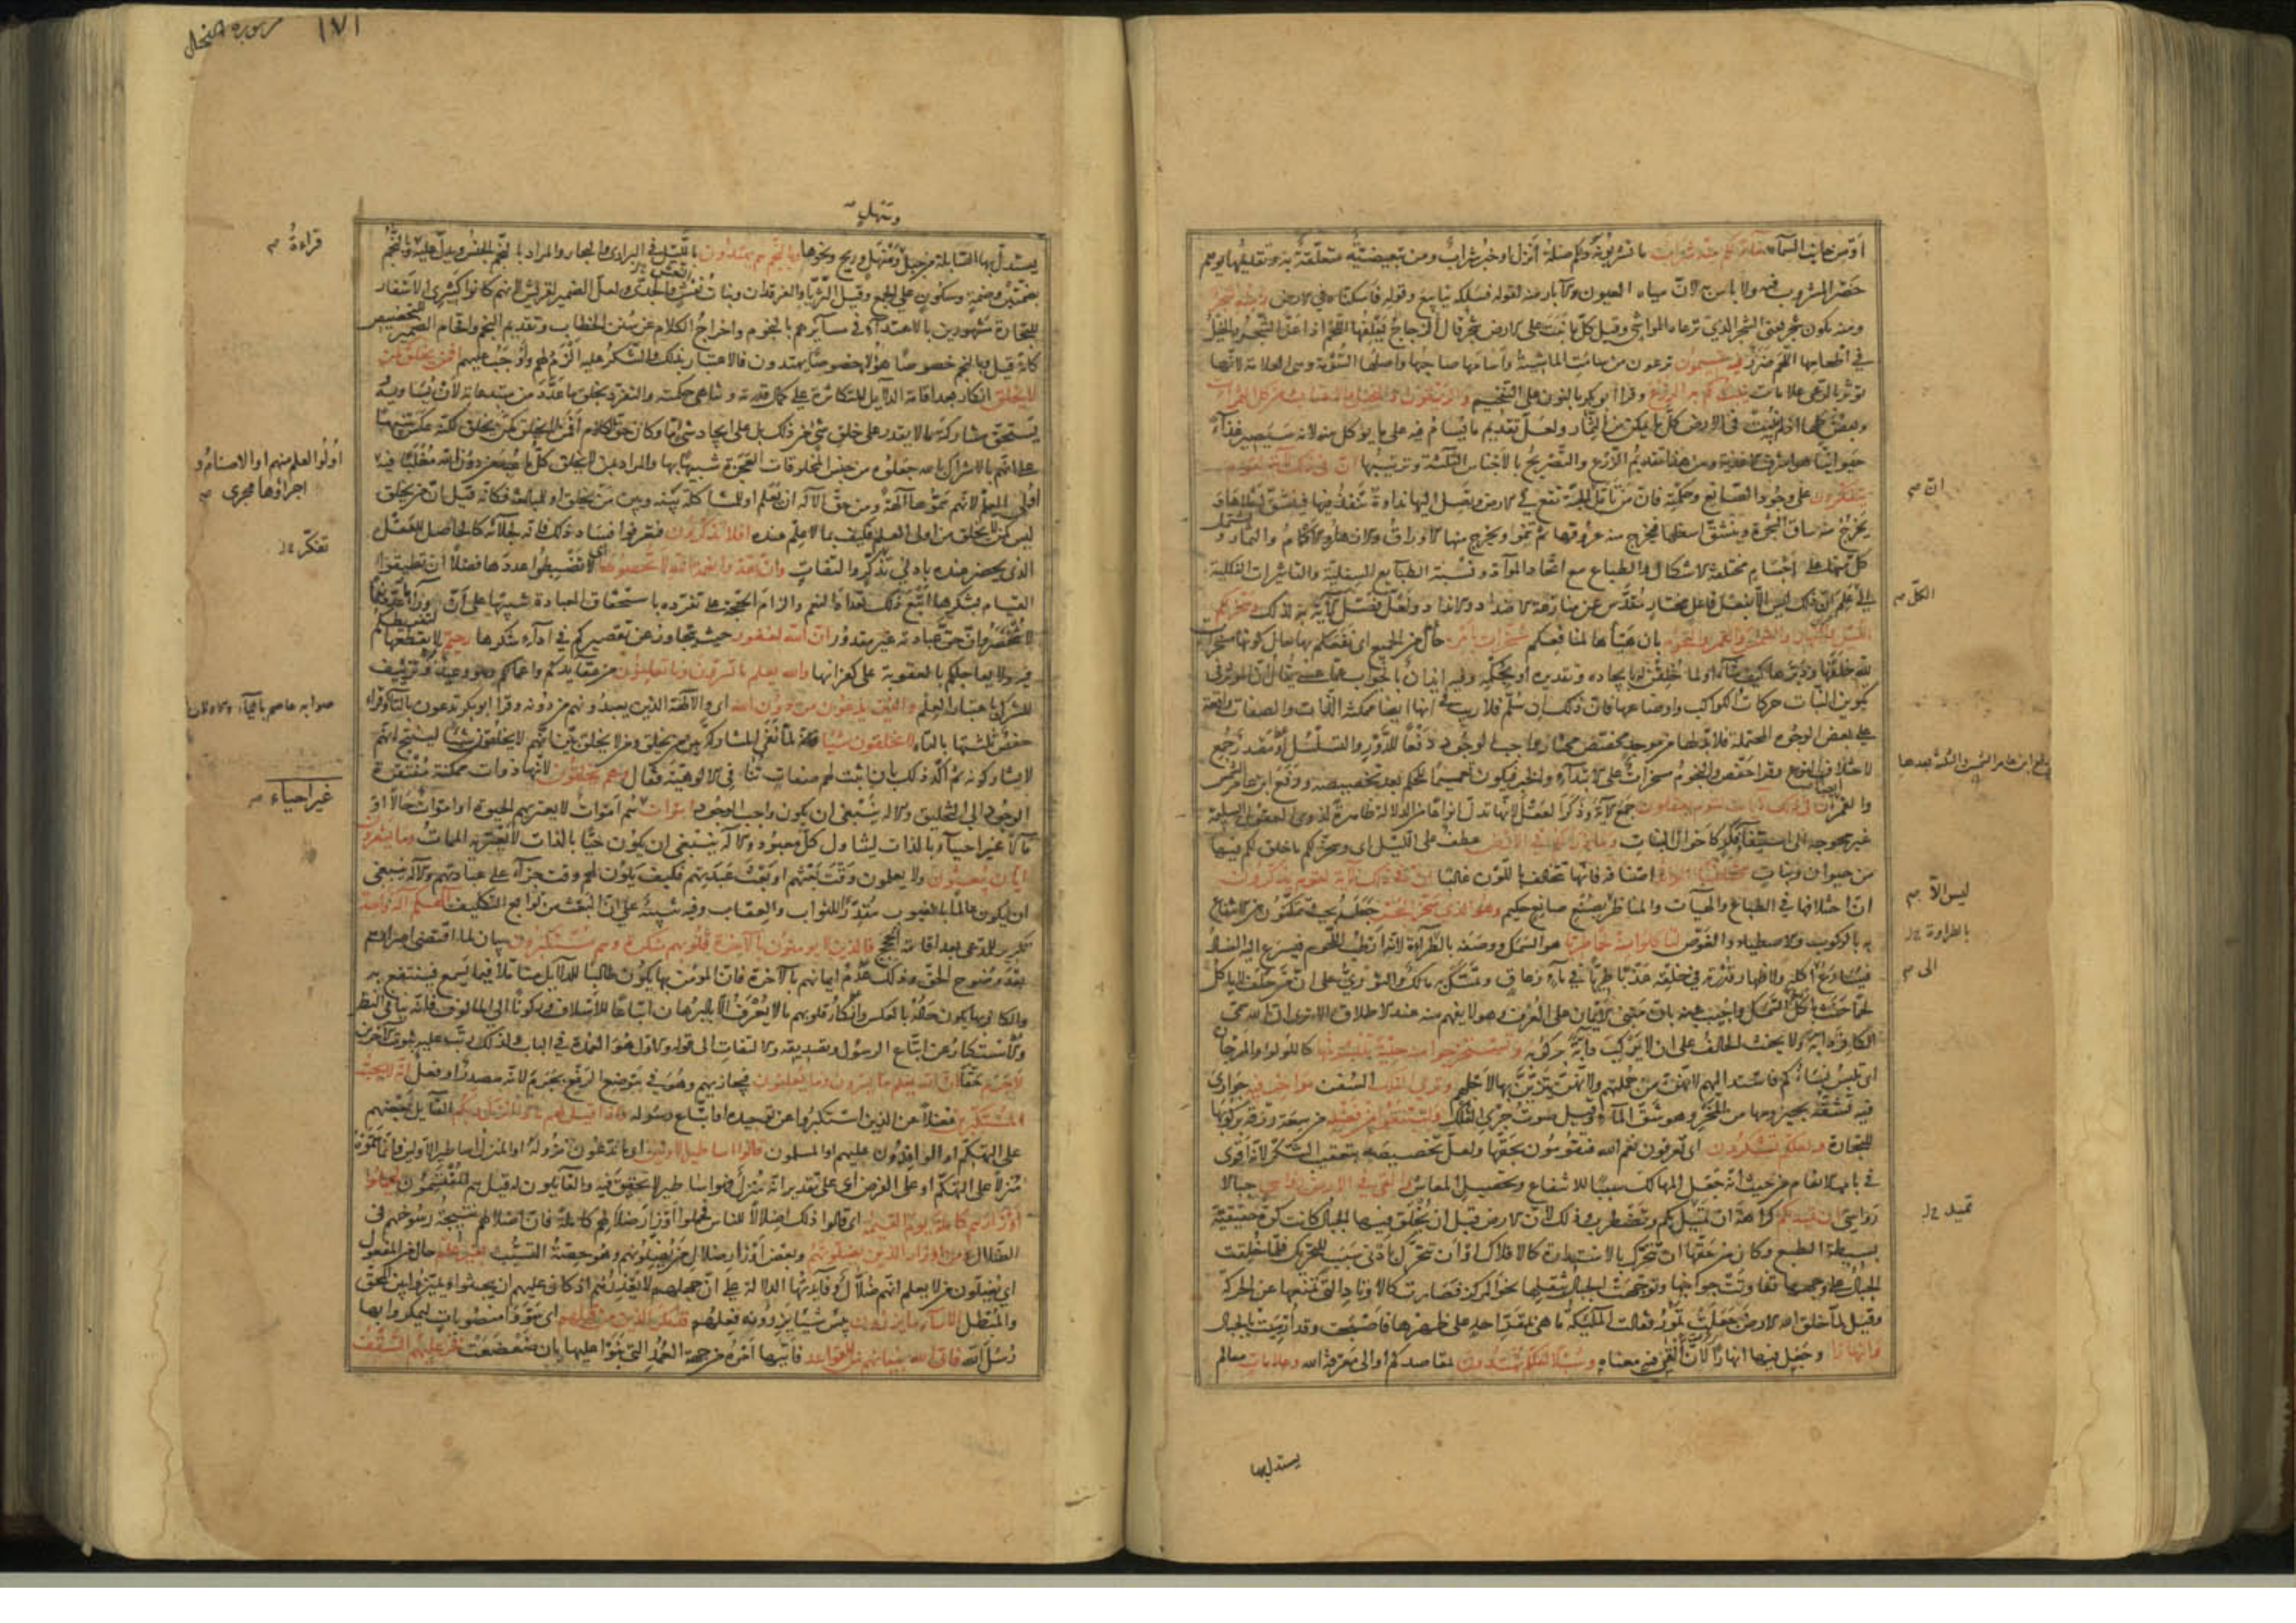 أو من جانب السماء ماء لكم منه شراب ما تشربونه ولكم صلة أنزل أو خبر شراب ومن تبعيضية متعلقة به وتقديمها يوهم
حصر المشروب فيه ولا بأس به لأن مياه العيون والآبار منه لقوله فسلكه ينابيع وقوله فأسكناه في الأرض ومنه شجر
ومنه يكون شجر يعني الشجر الذي ترعاه المواشي وقيل كل ما نبت على الأرض شجر قال الزجاج يعلفها اللحم اذا عز الشجر والخيل
في اطعامها اللحم ضرر فيه تسيمون ترعون من سامت الماشية وأسامها صاحبها وأصلها السومة وهي العلامة لأنها
تؤثر بالرعي علامات ينبت لكم به الزرع وقرأ أبو بكر بالنون على التفخيم والزيتون والنخيل والأعناب ومن كل الثمرات
وبعض كلها اذ لم ينبت في الأرض كل ما يمكن من الثمار ولعل تقديم ما يسام فيه على ما يؤكل منه لأنه سيصير غذاء
حيوانيا هو أشرف الأغذية ومن هذا تقديم الزرع والتصريح بالأجناس الثلثة وترتيبها ان في ذلك لآية لقوم
يتفكرون على وجود الصانع وحكمته فان من تأمل الحبة تقع في الأرض ويصل اليها نداوة تنفذ فيها فينشق أعلاها و
يخرج منه ساق الشجرة وينشق أسفلها فيخرج منه عروقها ثم تنمو ويخرج منها الأوراق والأزهار والأكمام والثمار و
كل منها على أجسام مختلفة الأشكال والطباع مع اتحاد المواد ونسبة الطبايع السفلية والتأثيرات الفلكية
الى علم ان ذلك ليس الا بفعل فاعل مختار مقدس عن منازعة الأضداد والأنداد ولعل فصل الآية به لذلك وسخر لكم
الليل والنهار والشمس والقمر والنجوم بان هيأها لمنافعكم مسخرات بأمره حال من الجميع اى نفعكم بها حال كونها مسخرات
لله خلقها ودبرها كيف شاء أو لما خلقن له بإيجاده وتقديره أو بحكمه وفيه ايذان بالجواب عما عسى يقال ان المؤثر في
تكوين النبات حركات الكواكب وأوضاعها فان ذلك ان سلم فلا ريب في انها ايضا ممكنة الذات والصفات واقعة
على بعض الوجوه المحتملة فلا بد لها من موجد مخصص مختار واجب الوجود دفعا للدور والتسلسل أو مصدر جمع
لاختلاف الانواع وقرأ حفص والنجوم مسخرات على الابتداء والخبر فيكون تعميما للحكم بعد تخصيصه ورفع ابن عامر الشمس
والقمر ايضا ان في ذلك لآيات لقوم يعقلون جمع الآية وذكر العقل لأنها تدل أنواعا من الدلالة ظاهرة لذوي العقول السليمة
غير محوجة الى استيفاء فكر كأحوال النبات وما ذرأ لكم في الأرض عطف على الليل اى وسخر لكم ما خلق لكم فيها
من حيوان ونبات مختلفا ألوانه أصنافه فانها تتخالف باللون غالبا ان في ذلك لآية لقوم يذكرون
ان اختلافها في الطباع والهيآت والمناظر بصنع صانع حكيم وهو الذى سخر البحر جعله بحيث تتمكنون من الانتفاع
به بالركوب والاصطياد والغوص لتأكلوا منه لحما طريا هو السمك ووصفه بالطراوة لأنه ارطب اللحوم فيسرع اليه الفساد
فيسارع الى أكله ولاظهار قدرته في خلقه عذبا طريا في ماء زعاق وتمسك به مالك والثورى على ان من حلف لا يأكل
لحما حنث بأكل السمك وأجيب عنه بان مبنى الأيمان على العرف وهو لا يفهم منه عند الاطلاق الا ترى ان الله سمى
الكافر دابة ولا يحنث الحالف على ان لا يركب دابة بركوبه وتستخرجوا منه حلية تلبسونها كاللؤلؤ والمرجان
اى تلبس نساؤكم فاسند اليهم لانهن من جملتهم ولانهن يتزين بها لأجلهم وترى الفلك السفن مواخر فيه جواري
فيه تشقه بحيزومها من المخر وهو شق الماء وقيل صوت جرى الفلك ولتبتغوا من فضله من سعة رزقه بركوبها
للتجارة ولعلكم تشكرون اى تعرفون نعم الله فتقومون بحقها ولعل تخصيصه بتعقيب الشكر لأنه أقوى
في باب الانعام من حيث أنه جعل المهالك سببا للانتفاع وتحصيل المعاش وألقى في الأرض رواسي جبالا
رواسي ان تميد بكم كراهة ان تميل بكم وتضطرب وذلك لان الأرض قبل ان تخلق فيها الجبال كانت كرة حقيقية
بسيطة الطبع وكان من حقها ان تتحرك بالاستدارة كالأفلاك أو ان تتحرك بأدنى سبب للتحريك فلما خلقت
الجبال على وجهها تفاوتت جوانبها وتوجهت الجبال بثقلها نحو المركز فصارت كالأوتاد التى تمنعها عن الحركة
وقيل لما خلق الله الأرض جعلت تمور فقالت الملئكة ما هى بمقر احد على ظهرها فأصبحت وقد أرسيت بالجبال
وأنهارا وجعل فيها أنهارا لان ألقى فيه معناه وسبلا لعلكم تهتدون لمقاصدكم أو الى معرفة الله وعلامات معالم
يستدل بها
ان
الكل
ليس الا
بالطراوة
الى
تميد
سورة النحل ١٧١
ومنهل
يستدل بها السابلة من جبل ومنهل وريح ونحوها وبالنجم هم يهتدون بالليل في البرارى والبحار والمراد بالنجم الجنس ويدل عليه وبالنجم
بضمتين وضمة وسكون على الجمع وقيل الثريا والفرقدان وبنات نعش والجدى ولعل الضمير لقريش لانهم كانوا كثيرى الأسفار
للتجارة مشهورين بالاهتداء في مسايرهم بالنجوم واخراج الكلام عن سنن الخطاب وتقديم النجم واقحام الضمير للتخصيص
كانه قيل وبالنجم خصوصا هؤلاء خصوصا يهتدون فالاعتبار بذلك والشكر عليه ألزم لهم وأوجب عليهم أفمن يخلق كمن
لا يخلق انكار بعد اقامة الدلايل المتكاثرة على كمال قدرته وتناهى حكمته والتفرد بخلق ما عدد من مبدعاته لان يساويه
يستحق مشاركته ما لا يقدر على خلق شئ من ذلك بل على ايجاد شئ ما وكان حق الكلام أفمن لا يخلق كمن يخلق لكنه عكس تنبيها
على انهم بالاشراك بالله جعلوه من جنس المخلوقات العجزة شبيها بها والمراد بمن لا يخلق كل ما عبد من دون الله مغلبا فيه
أولى العلم لانهم سموها آلهة ومن حق الآله ان يعلم أو للمشاكلة بينه وبين من يخلق أو للمبالغة فكأنه قيل ان من يخلق
ليس كمن لا يخلق من اولى العلم فكيف بما لا علم عنده أفلا تذكرون فتعرفوا فساد ذلك فانه لجلائه كالحاصل للعقل
الذى يحضر عنده بأدنى تذكر والتفات وان تعدوا نعمة الله لا تحصوها اى لا تضبطوا عددها فضلا ان تطيقوا
القيام بشكرها أتبع ذلك تعداد النعم والزام الحجة على تفرده باستحقاق العبادة تنبيها على ان وراء ما عدد نعما
لا تنحصر وان حق عبادته غير مقدور ان الله لغفور حيث يتجاوز عن تقصيركم في أداء شكرها رحيم لا يقطعها لتفريطكم
فيه ولا يعاجلكم بالعقوبة على كفرانها والله يعلم ما تسرون وما تعلنون من عقايدكم وأعمالكم وهو وعيد وتزييف
للشرك باعتبار العلم والذين يدعون من دون الله اى والآلهة الذين يعبدونهم من دونه وقرأ ابو بكر تدعون بالتاء وقرأ
حفص ثلثتها بالياء لا يخلقون شيئا لما نفى المشاركة بين من يخلق ومن لا يخلق بين انهم لا يخلقون شيئا لينتج انهم
لا يشاركونه ثم أكد ذلك بان اثبت لهم صفات تنافى الألوهية فقال وهم يخلقون لانها ذوات ممكنة مفتقرة
الوجود الى التخليق والاله ينبغى ان يكون واجب الوجود اموات هم أموات لا يعتريهم الحيوة أو اموات حالا أو
مآلا غير أحياء بالذات ليتناول كل معبود والاله ينبغى ان يكون حيا بالذات لا يعتريه الممات وما يشعرون
أيان يبعثون ولا يعلمون وقت بعثهم أو بعث عبدتهم فكيف يكون لهم وقت جزاء على عبادتهم والاله ينبغى
ان يكون عالما بالغيوب مقدرا للثواب والعقاب وفيه تنبيه على ان البعث من توابع التكليف الهكم اله واحد
تكرير للمدعى بعد اقامة الحجج فالذين لا يؤمنون بالآخرة قلوبهم منكرة وهم مستكبرون بيان لما اقتضى اصرارهم
بعد وضوح الحق وذلك عدم ايمانهم بالآخرة فان المؤمن بها يكون طالبا للدلايل متأملا فيما يسمع فينتفع به
والكافر بها يكون حاله بالعكس وانكار قلوبهم ما لا يعرف الا بالبرهان اتباعا للاسلاف وركونا الى المألوف فانه ينافى النظر
والاستكبار عن اتباع الرسول وتصديقه والالتفات الى قوله والاول هو العمدة في الباب ولذلك رتب عليه ثبوت الآخرين
لا جرم حقا ان الله يعلم ما يسرون وما يعلنون فيجازيهم وهو في موضع الرفع بجرم لانه مصدر أو فعل انه لا يحب
المستكبرين فضلا عن الذين استكبروا عن توحيده أو اتباع رسوله واذا قيل لهم ماذا أنزل ربكم القائل بعضهم
على التهكم أو الوافدون عليهم أو المسلمون قالوا اساطير الأولين اى ما تدعون نزوله أو المنزل اساطير الأولين وانما سموه
منزلا على التهكم أو على الفرض اى على تقدير انه منزل فهو أساطير لا تحقيق فيه والقائلون له قيل هم المقتسمون ليحملوا
أوزارهم كاملة يوم القيمة اى قالوا ذلك اضلالا للناس فحملوا أوزار ضلالهم كاملة فان اضلالهم نتيجة رسوخهم في
الضلال ومن أوزار الذين يضلونهم وبعض أوزار ضلال من يضلونهم وهو حصة التسبب بغير علم حال من المفعول
اى يضلون من لا يعلم انهم ضلال وفائدتها الدلالة على ان جهلهم لا يعذرهم اذ كان عليهم ان يبحثوا ويميزوا بين المحق
والمبطل ألا ساء ما يزرون بئس شيئا يزرونه فعلهم قد مكر الذين من قبلهم اى سووا منصوبات ليمكروا بها
رسل الله فأتى الله بنيانهم من القواعد فأتيها أمره من جهة العمد التى بنوا عليها بان ضعضعت فخر عليهم السقف
قراءة
اولوا العلم منهم أو الاصنام و
اجراؤها مجرى
تفكر
غير احياء